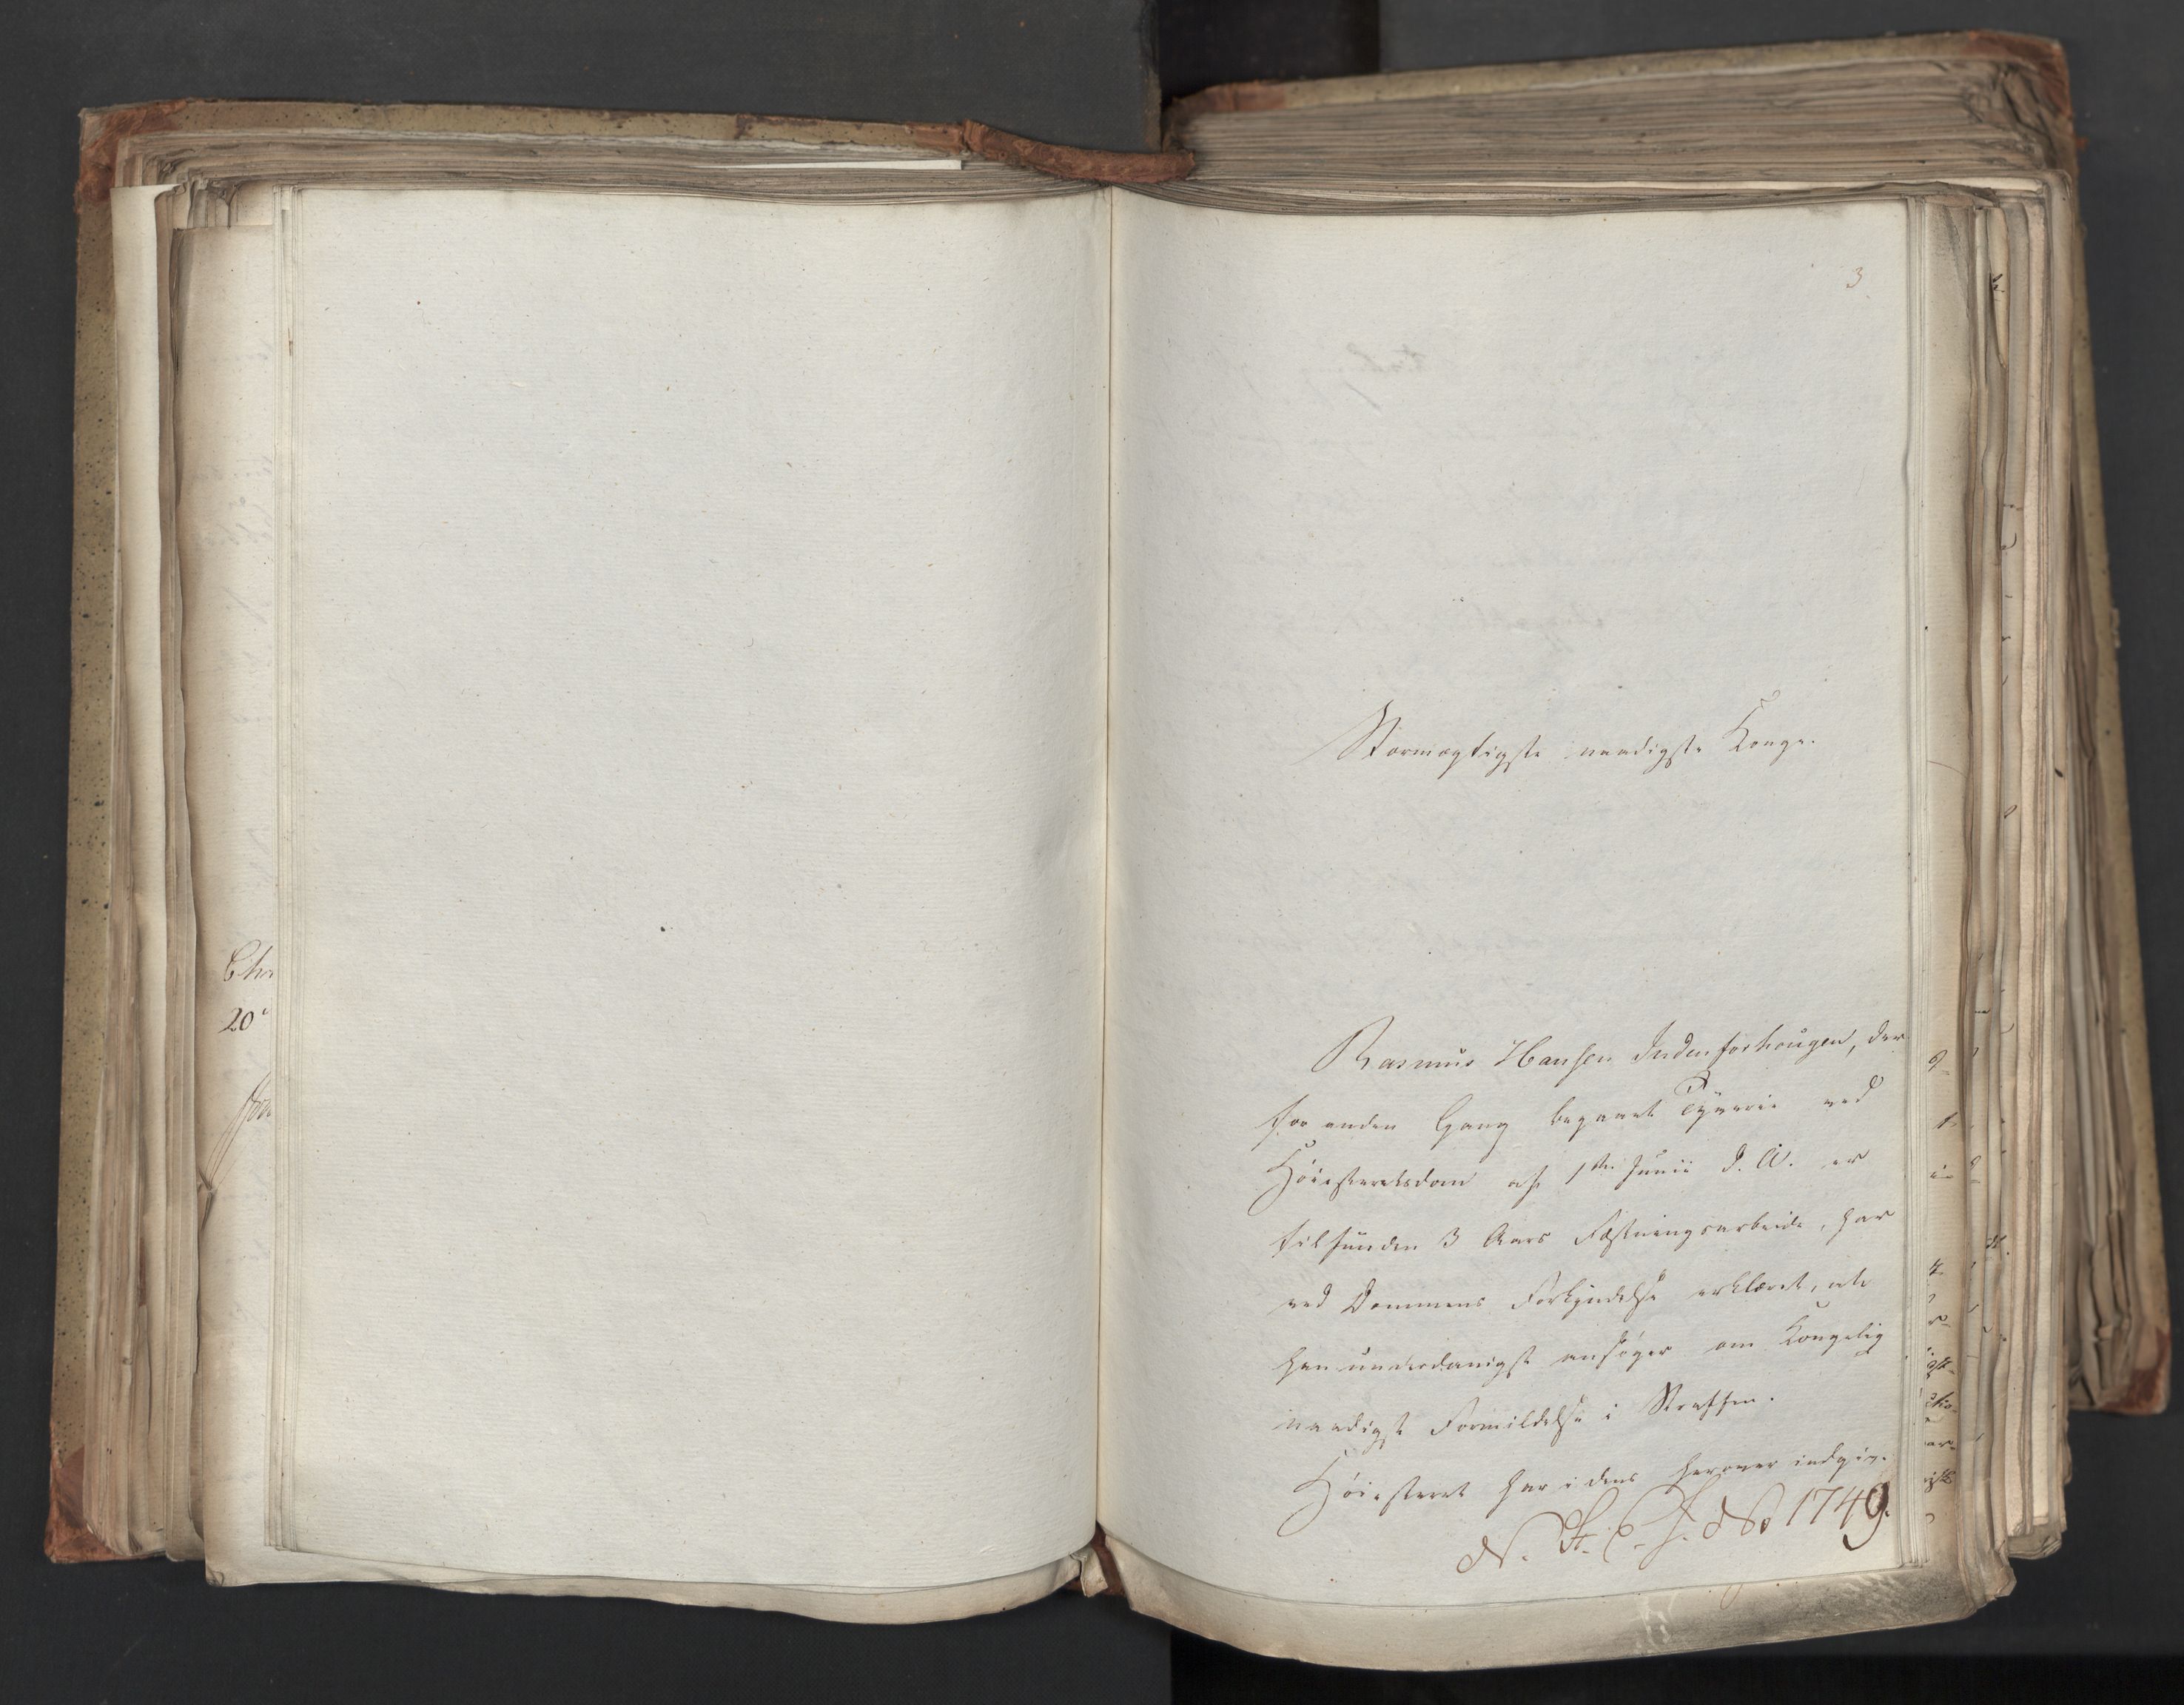 3
Stormægtigste naadigste Konge.
Rasmus Hansen Indenforhougen, der
for anden Gang begaaet Tyverie ved
Höiesteretsdom af 1ste Junii d. A. er
tilfunden 3 Aars Fæstningsarbeide, har
ved Dommens Forkyndelse erklæret, at
han underdanigst ansöger om Kongelig
naadigst Formildelse i Straffen.
Höiesteret har i dens herover indgiv-
No 1749.
Chr
20